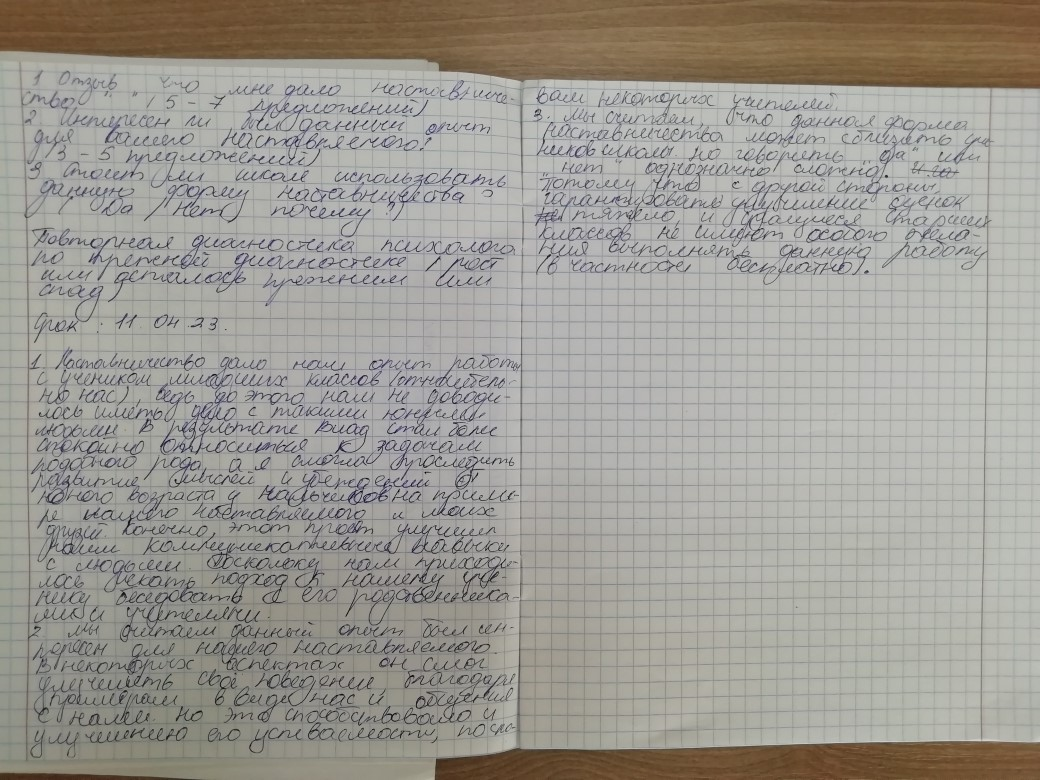 1 Отзыв "что мне дало наставниче-
ство" (5-7 предложений)
2 Интересен ли был данный опыт
для вашего наставляемого?
(3-5 предложений)
3 Стоит ли школе использовать
данную форму наставничества?
( Да / Нет почему?)
Повторная диагностика психолога
по прежней диагностике (рост
или осталось прежним или
спад)
Срок : 11.04.23.
1. Наставничество дало нам опыт работы
с учеником младших классов (относитель-
но нас), ведь до этого нам не доводи-
лось иметь дело с такими юными
людьми. В результате Влад стал более
спокойно относиться к задачам
подобного рода, а я смогла проследить
развитие мыслей и убеждений
юного возраста у мальчиков на приме-
ре нашего наставляемого и моих
друзей. Конечно, этот проект улучшил
наши коммуникативные навыки
с людьми. Поскольку нам приходи-
лось искать подход к нашему уче-
нику беседовать с его родственника-
ми и учителями.
2 Мы считаем данный опыт был ин-
тересен для нашего наставляемого.
В некоторых аспектах он смог
улучшить своё поведение благодаря
примерам в виде нас и общения
с нами. Но это способствовало и
улучшению его успеваемости, по сло-
вам некоторых учителей.
3. Мы считаем, что данная форма
наставничества может сблизить уче-
ников школы, но говорить "да" или
"нет" однозначно сложно.
Потому что с другой стороны,
гарантировать улучшение оценок
тяжело, и учащиеся старших
классов не имеют особого жела-
ния выполнять данную работу
(в частности бесплатно).